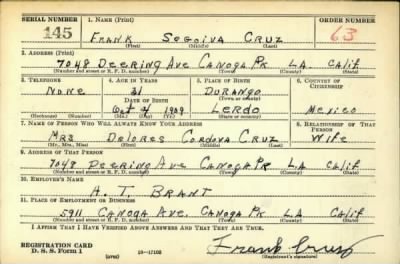 SERIAL NUMBER 1. NAME (Print) ORDER NUMBER
145 FRANK SEGOIVA CRUZ 63
(First) (Middle) (Last)
2. ADDRESS (Print)
7048 DEERING AVE CANOGA PK LA. CALIF.
(Number and street or R. F. D. number) (Town) (County) (State)
3. TELEPHONE 4. AGE IN YEARS 5. PLACE OF BIRTH 6. COUNTRY OF CITIZENSHIP
NONE 31 DURANGO
DATE OF BIRTH (Town or county)
OCT 4 1909 LERDO MEXICO
(Exchange) (Number) (Mo.) (Day) (Yr.) (State or country)
7. NAME OF PERSON WHO WILL ALWAYS KNOW YOUR ADDRESS 8. RELATIONSHIP OF THAT PERSON
MRS DELORES CORDOVA CRUZ WIFE
(Mr., Mrs., Miss) (First) (Middle) (Last)
9. ADDRESS OF THAT PERSON
7048 DEERING AVE CANOGA PK LA CALIF
(Number and street or R. F. D. number) (Town) (County) (State)
10. EMPLOYER'S NAME
A. T. BRANT
11. PLACE OF EMPLOYMENT OR BUSINESS
5911 CANOGA AVE. CANOGA PK LA CALIF
(Number and street or R. F. D. number) (Town) (County) (State)
I AFFIRM THAT I HAVE VERIFIED ABOVE ANSWERS AND THAT THEY ARE TRUE.
REGISTRATION CARD
D. S. S. Form 1 16—17105 Frank Cruz
(over) (Registrant's signature)